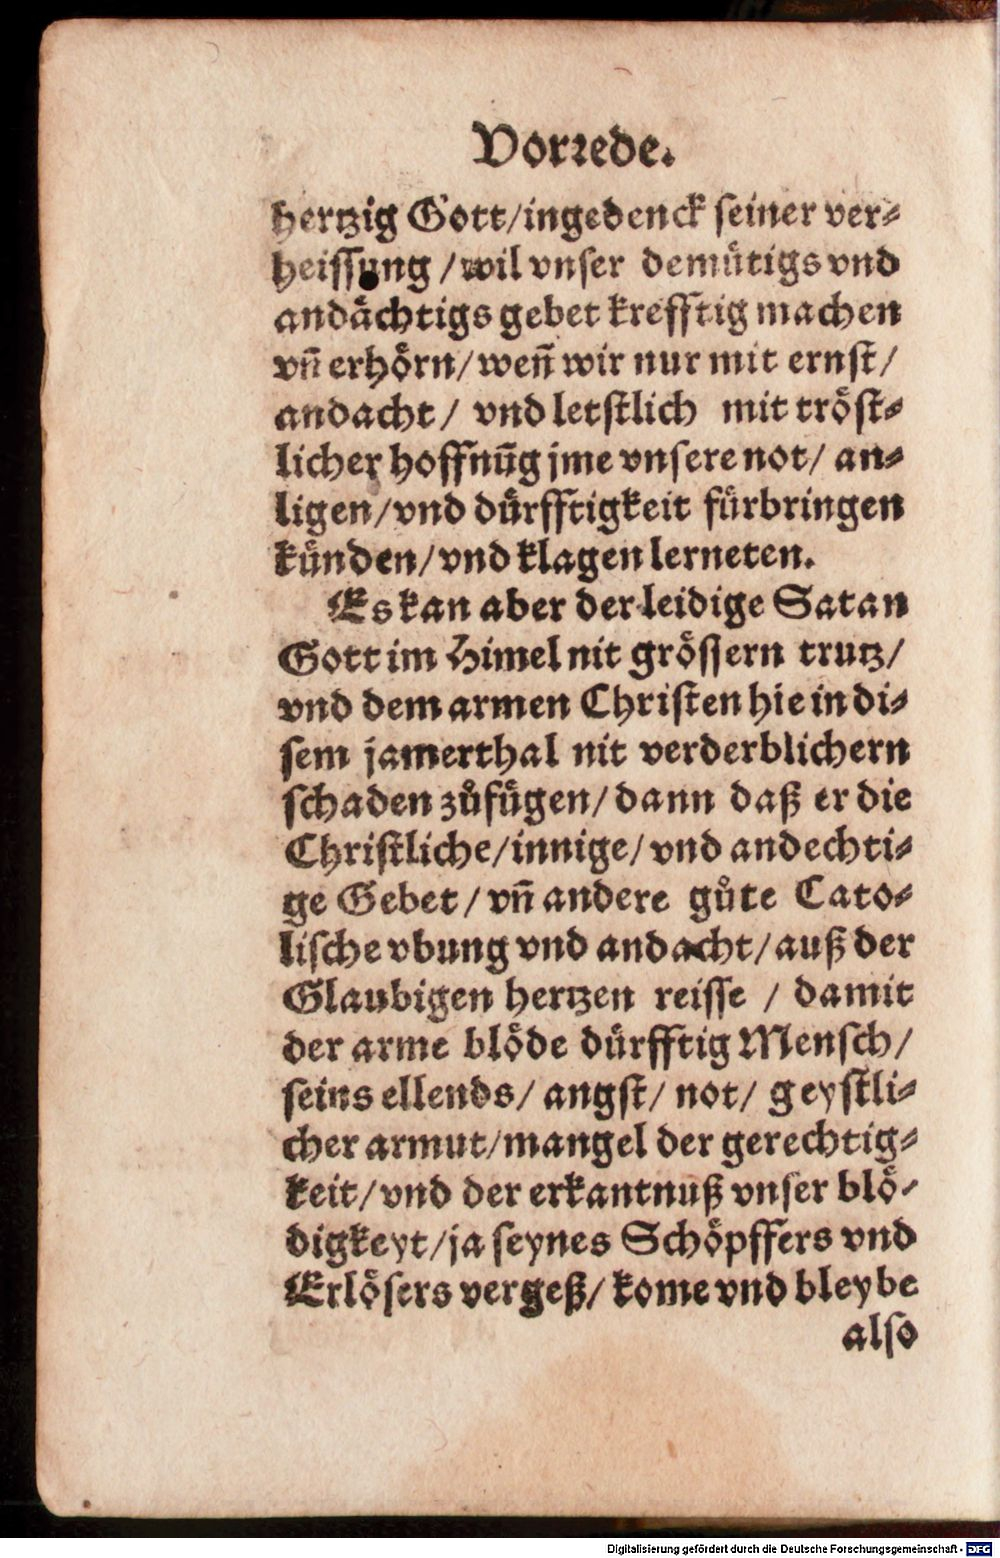 Vorrede.
hertzig Gott/ingedenck seiner ver⸗
heissung /wil vnser demuͤtigs vnd
andaͤchtigs gebet krefftig machen
vñ erhoͤrn/weñ wir nur mit ernst/
andacht/ vnd letstlich mit troͤst⸗
licher hoffnūg jme vnsere not/ an⸗
ligen/vnd duͤrfftigkeit fuͤrbringen
kuͤnden/vnd klagen lerneten.
Es kan aber der leidige Satan
Gott im Himel nit groͤssern trutz/
vnd dem armen Christen hie in di⸗
sem jamerthal nit verderblichern
schaden zůfuͤgen/dann daß er die
Christliche/innige/vnd andechti⸗
ge Gebet/vñ andere gůte Cato⸗
lische vbung vnd andacht/auß der
Glaubigen hertzen reisse / damit
der arme bloͤde duͤrfftig Mensch/
seins ellends/ angst/ not/ geystli⸗
cher armut/mangel der gerechtig⸗
keit/vnd der erkantnuß vnser bloͤ⸗
digkeyt/ja seynes Schoͤpffers vnd
Erloͤsers vergeß/kome vnd bleybe
also
Digitalisierung gefördert durch die Deutsche Forschungsgemeinschaft - DFG